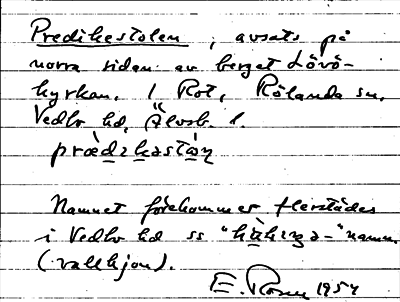 Predikestolen, avsats på
norra sidan av berget Lövö-
kyrkan. I Rot, Rölanda sn,
Vedbo hd, Älvsb. l.
prædikastón
Namnet förekommer flerstädes
i Vedbo hd ss "namn
(vallhjon).
E. Rosen 1954